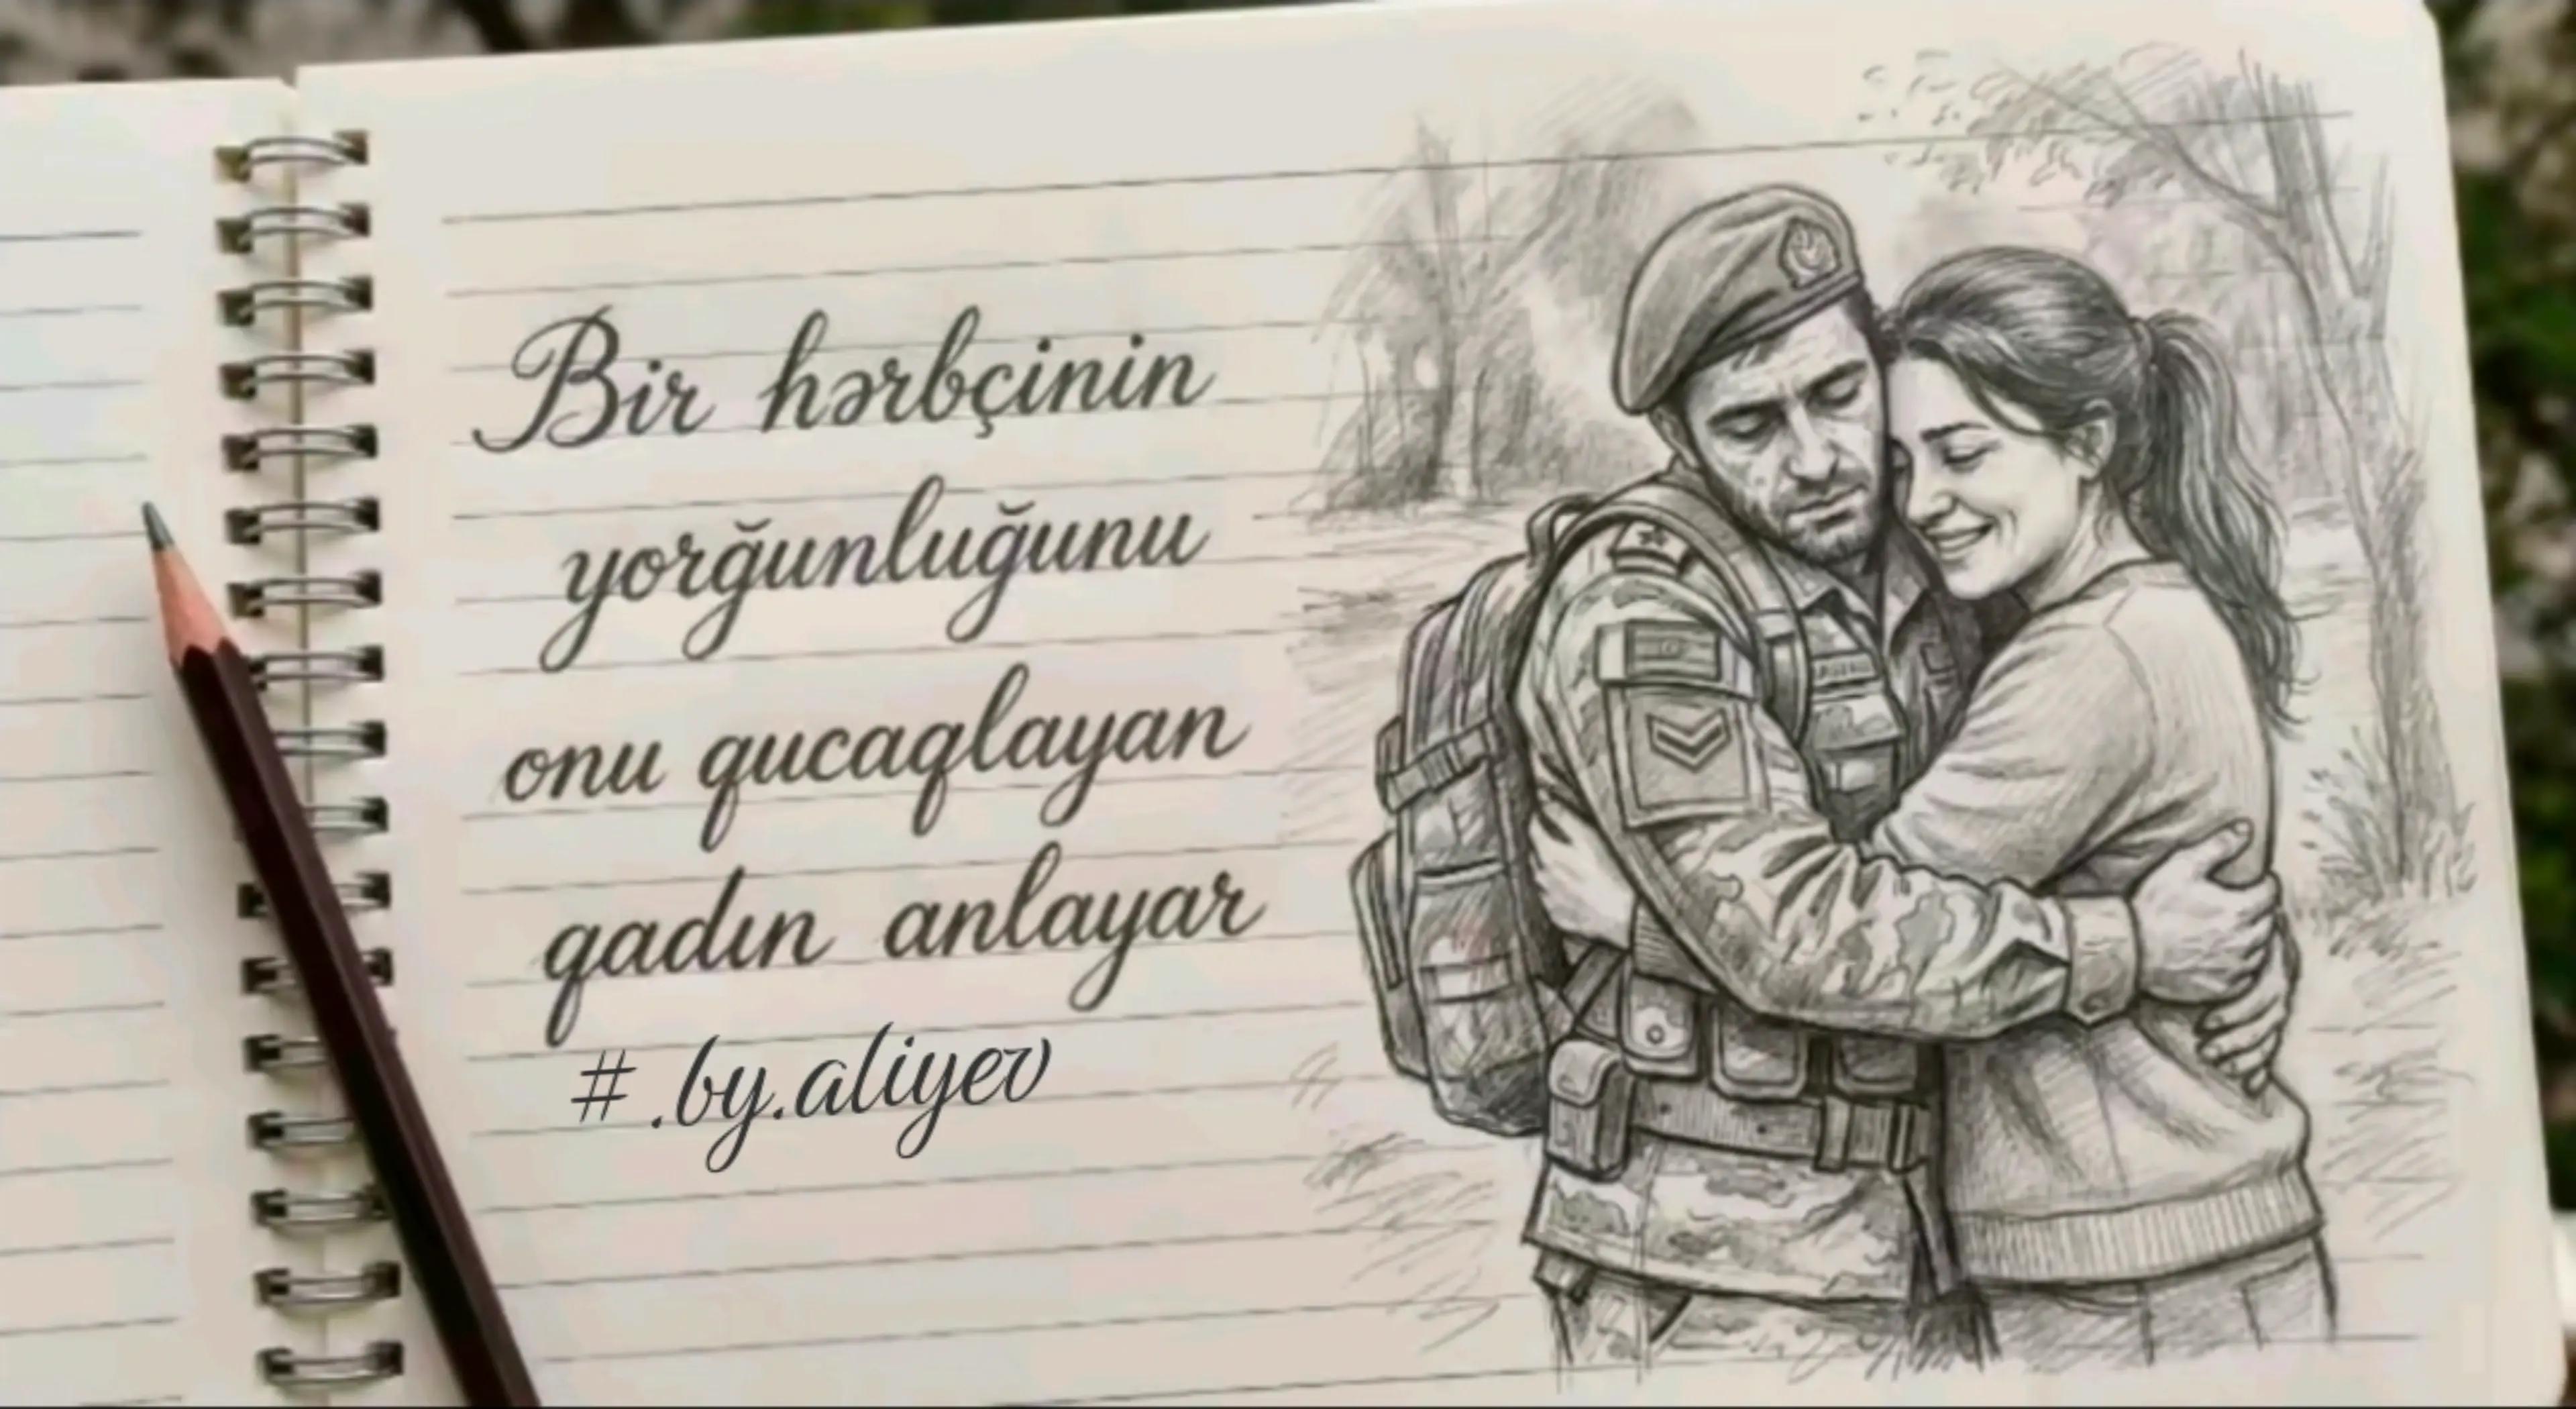 Bir hərbçinin
yorğunluğunu
onu qucaqlayan
qadın anlayar
# .by.aliyev